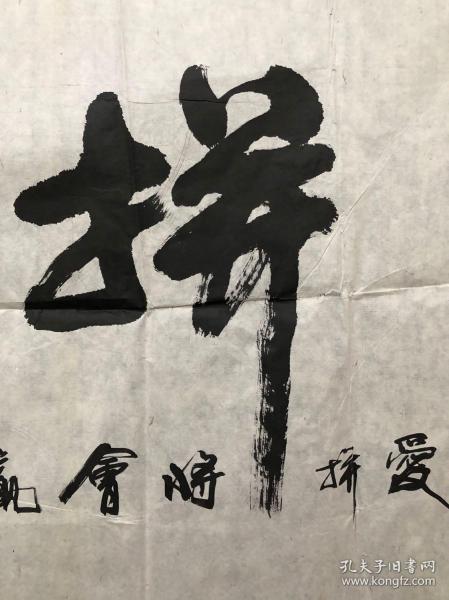 拼
愛拼將會贏
孔夫子旧书网
www.kongfz.com